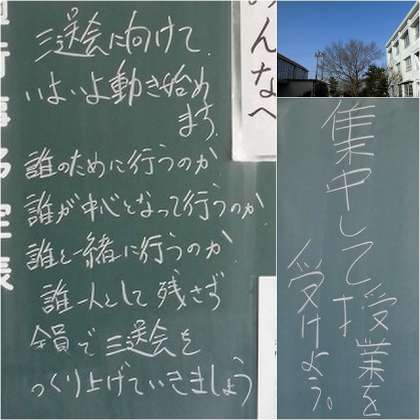 三送会に向けて
いよいよ動き始め
ます。
誰のために行うのか
誰が中心となって行うのか
誰と一緒に行うのか
誰一人として残さず
全員で三送会を
つくり上げていきましょう
みんなへ
行事予定表
集中して授業を
受けよう。